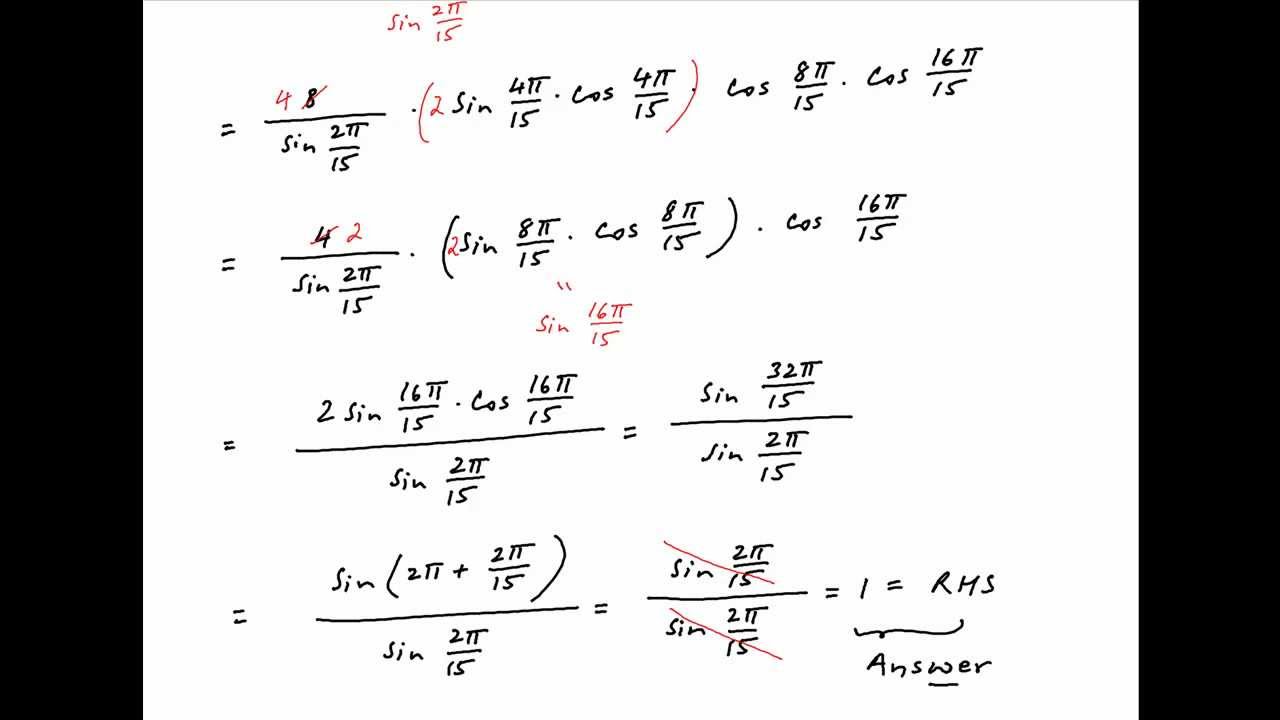 sin 2π/15
= 4 8/(sin 2π/15) · (2 sin 4π/15 · cos 4π/15) · cos 8π/15 · cos 16π/15
= 4 2/(sin 2π/15) · (2 sin 8π/15 · cos 8π/15) · cos 16π/15
"
sin 16π/15
= (2 sin 16π/15 · cos 16π/15)/(sin 2π/15) = (sin 32π/15)/(sin 2π/15)
= (sin(2π + 2π/15))/(sin 2π/15) = (sin 2π/15)/(sin 2π/15) = 1 = RHS
Answer